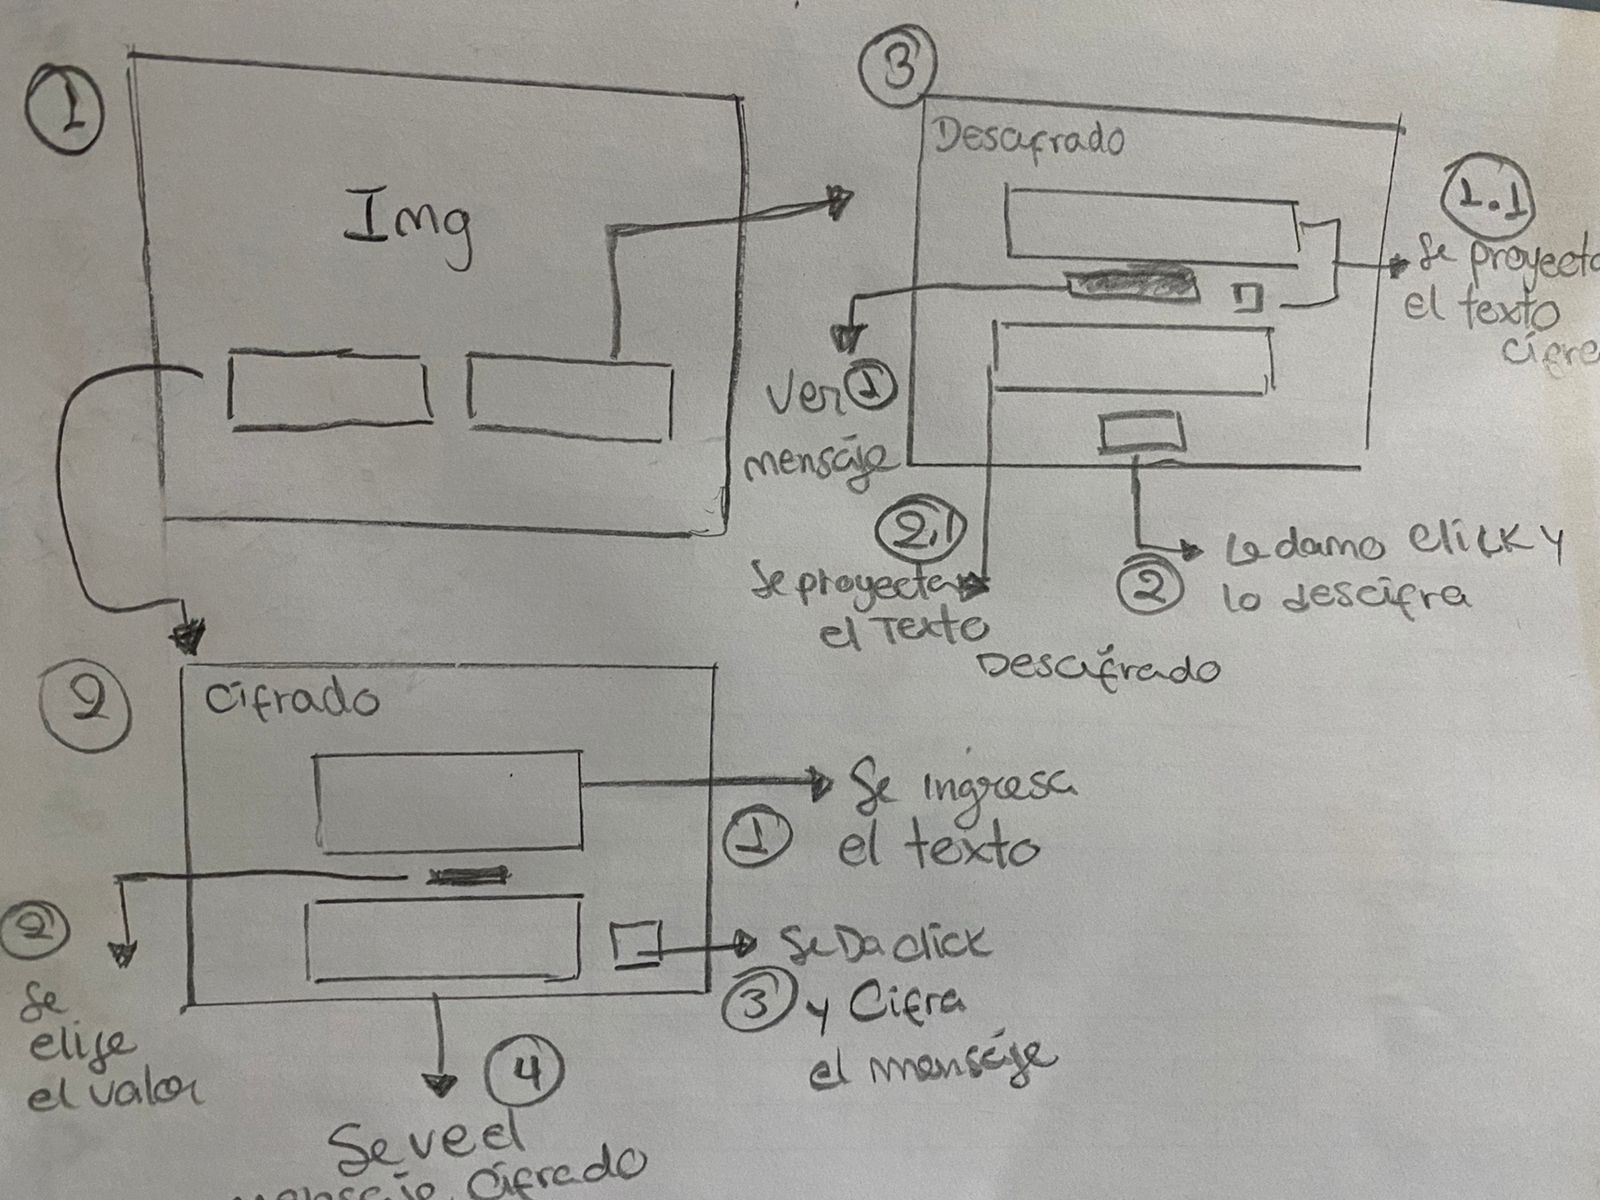 1
Img
3
Descifrado
1.1
Se proyecta
el texto
cifra
Ver 1
mensaje
2.1
Se proyecta
el Texto
Descifrado
2
Le damo click y
lo descifra
2
Cifrado
1
Se ingresa
el texto
2
Se
elije
el valor
3
Se Da click
y Cifra
el mensaje
4
Se ve el
mensaje Cifrado